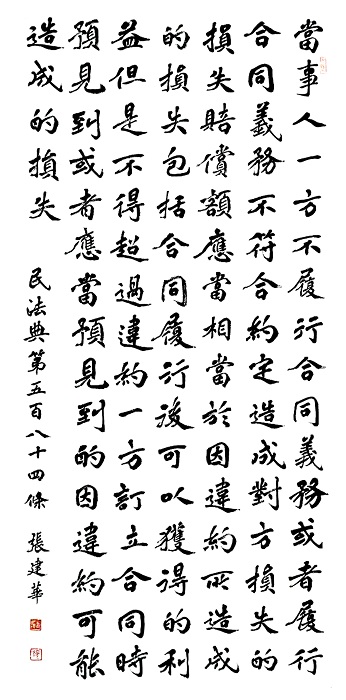 當事人一方不履行合同義務或者履行
合同義務不符合約定造成對方損失的
損失賠償額應當相當於因違約所造成
的損失包括合同履行後可以獲得的利
益但是不得超過違約一方訂立合同時
預見到或者應當預見到的因違約可能
造成的損失
民法典第五百八十四條 張建華